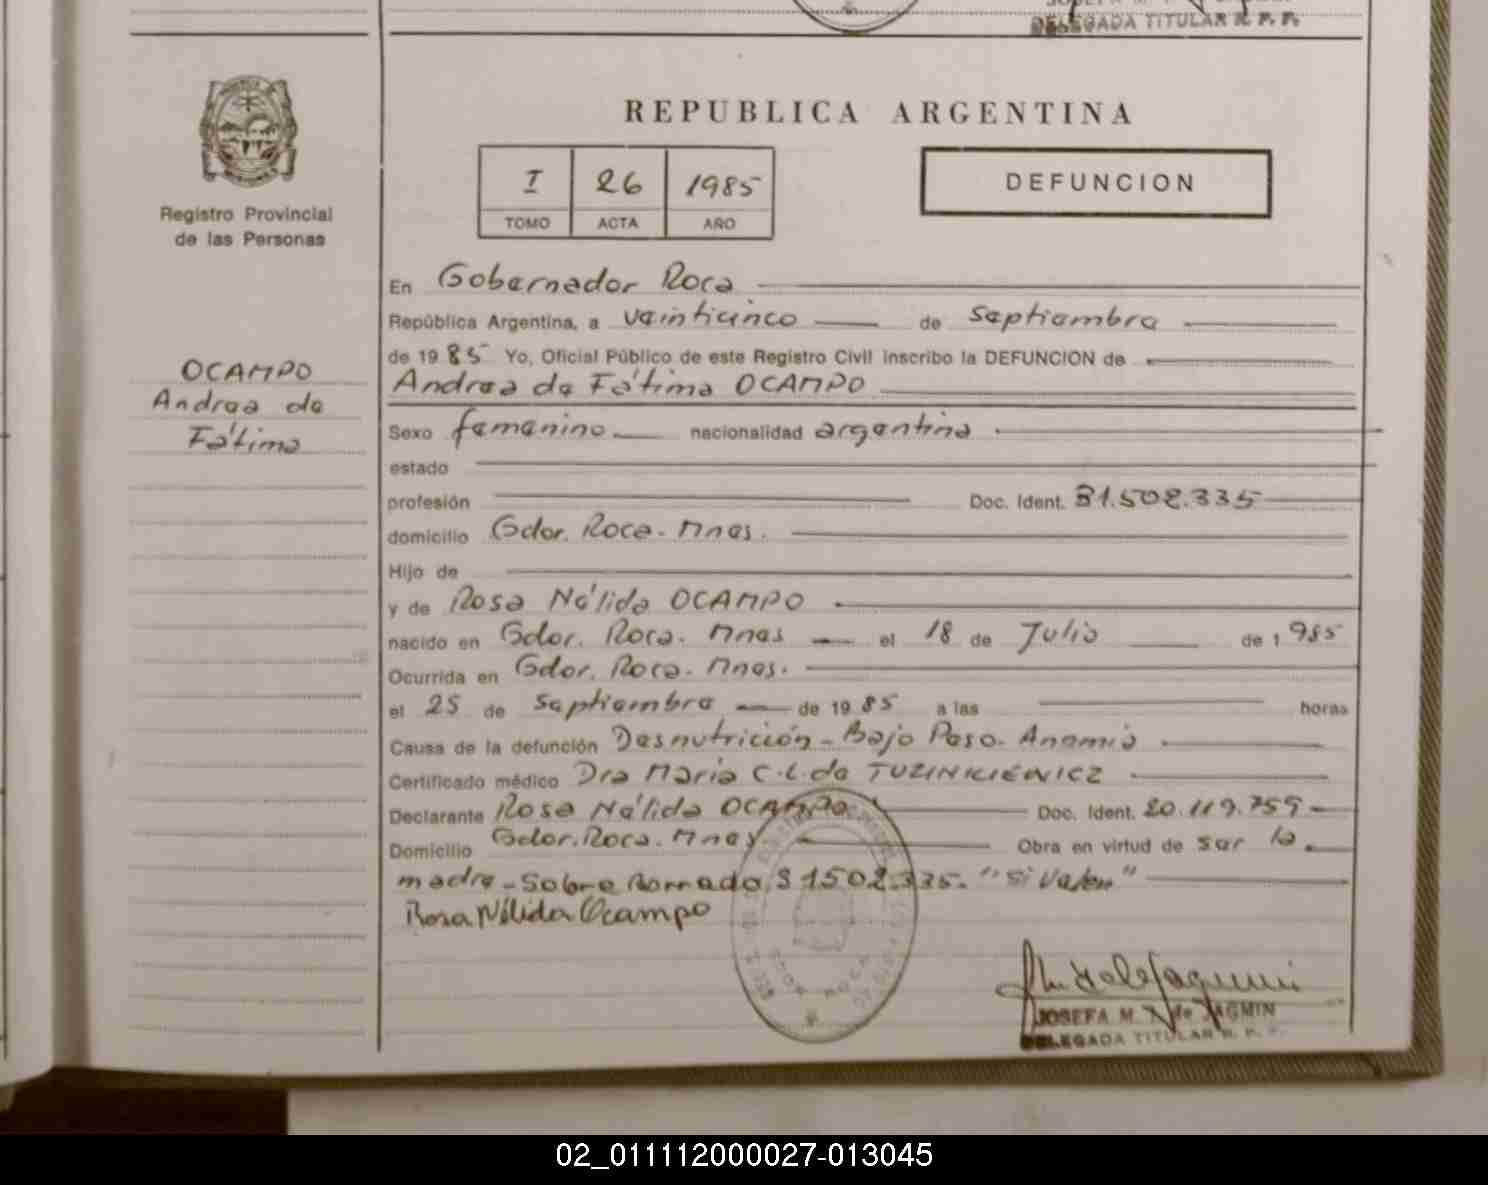 DELEGADA TITULAR R. P. P.
REPUBLICA ARGENTINA
I 26 1985
TOMO ACTA AÑO
DEFUNCION
Registro Provincial
de las Personas
OCAMPO
Andrea de
Fátima
En Gobernador Roca
República Argentina, a veinticinco de septiembre
de 1985 Yo, Oficial Público de este Registro Civil inscribo la DEFUNCION de
Andrea de Fátima OCAMPO
Sexo femenino nacionalidad argentina
estado
profesión Doc. Ident. 31.502.335
domicilio Gdor. Roca. Mnes.
Hijo de
y de Rosa Nélida OCAMPO
nacido en Gdor. Roca. Mnes el 18 de Julio de 1985
Ocurrida en Gdor. Roca. Mnes.
el 25 de septiembre de 1985 a las horas
Causa de la defunción Desnutrición - Bajo Peso. Anemia
Certificado médico Dra María C.L. de TUZINKIEWICZ
Declarante Rosa Nélida OCAMPO Doc. Ident. 20.119.759
Domicilio Gdor. Roca. Mnes Obra en virtud de ser la
madre - Sobre Borrado 31502.335. "Si Valen"
Rosa Nélida Ocampo
JOSEFA M. de JAGMIN
DELEGADA TITULAR R. P. P.
02_011112000027-013045